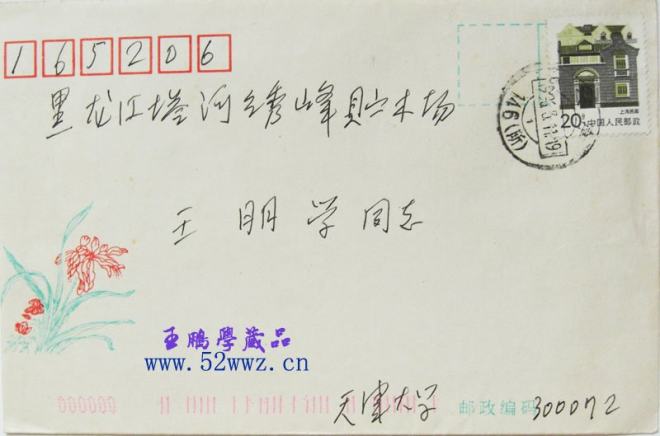 165206
黑龙江塔河绣峰贮木场
上海民居
20 中国人民邮政
146(所)
王明学同志
王鹏學藏品
www.52wwz.cn
天津大学 邮政编码 300072